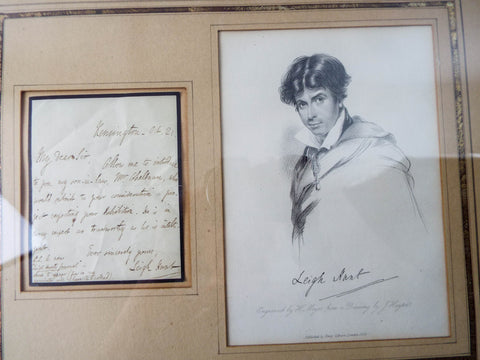 Kensington - Oct 21
My dear Sir Allow me to introduce
to you my son-in-law, Mr Cheltnam, who
would submit to your consideration a pro-
ject respecting your Exhibition. He is in
every respect as trustworthy as he is intelli-
gent.
Ever sincerely yours,
Leigh Hunt
Leigh Hunt
Engraved by H. Meyer from a Drawing by J. Hayter
Published by Henry Colburn London